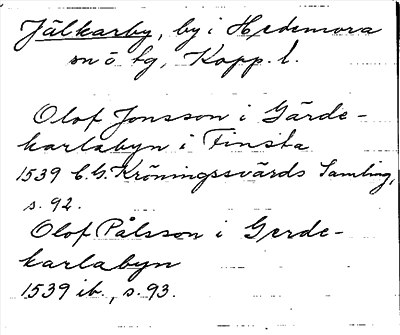 Jälkarby, by i Hedemora
sn o tg, Kopp. l.
Olof Jonsson i Gärde-
karlabyn i Finsta
1539 C.G. Kröningssvärds Samling,
s. 92.
Olof Pålsson i Gerde-
karlabyn
1539 ib., s. 93.